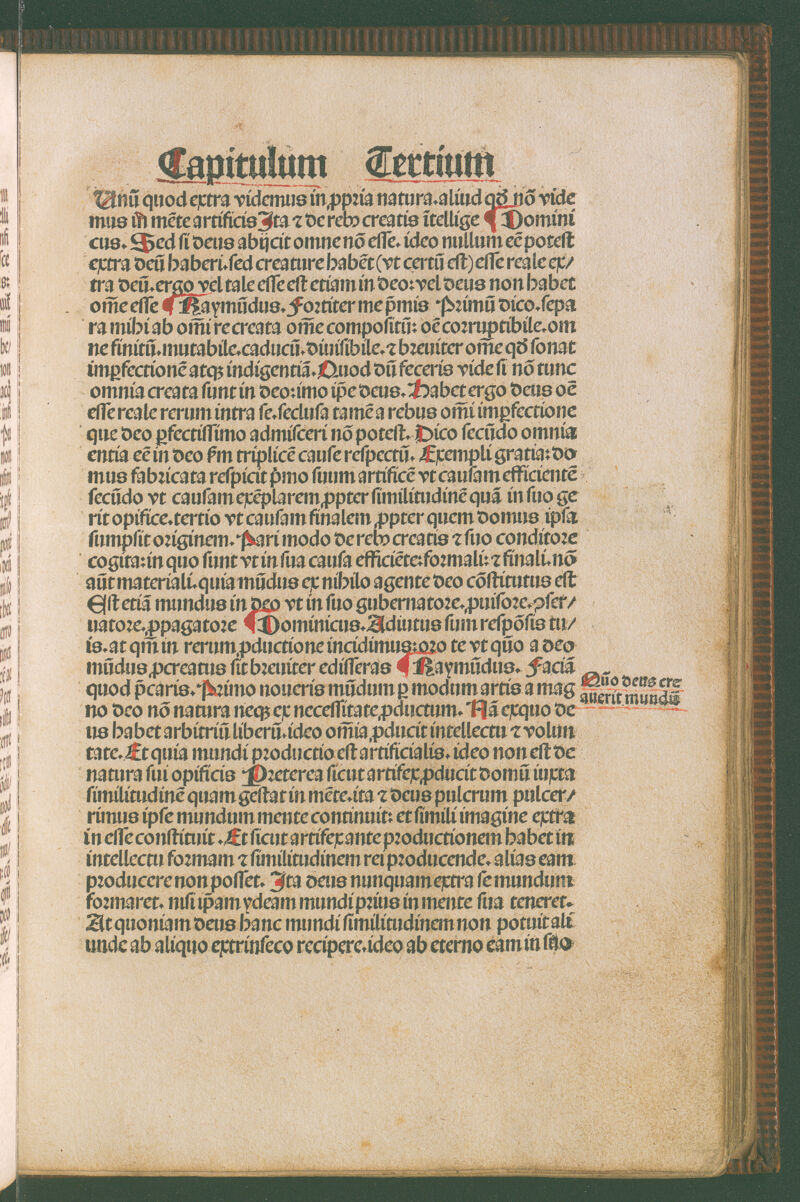 Capitulum Tertium
Unũ quod extra videmus in ꝓpꝛia natura.aliud qđ nõ vide
mus in mẽte artificis Ita ⁊ de rebꝯ creatis ĩtellige ¶ Domini
cus. Sed ſi deus abijcit omne nõ eſſe. ideo nullum eẽ poteſt
extra deũ haberi.ſed creature habẽt (vt certũ eſt) eſſe reale ex/
tra deũ.ergo vel tale eſſe eſt etiam in deo: vel deus non habet
om̃e eſſe ¶ Raymũdus. Foꝛtiter me p̃mis Pꝛimũ dico.ſepa
ra mihi ab om̃i re creata om̃e compoſitũ: oẽ coꝛruptibile.om
ne finitũ.mutabile.caducũ.diuiſibile.⁊ bꝛeuiter om̃e qđ ſonat
imꝑfectionẽ atqꝫ indigentiã. Quod dũ feceris vide ſi nõ tunc
omnia creata ſunt in deo: imo ip̃e deus. Habet ergo deus oẽ
eſſe reale rerum intra ſe.ſecluſa tamẽ a rebus om̃i imꝑfectione
que deo ꝑfectiſſimo admiſceri nõ poteſt. Dico ſecũdo omnia
entia eẽ in deo ẜm triplicẽ cauſe reſpectũ. Exempli gratia: do
mus fabꝛicata reſpicit p̃mo ſuum artificẽ vt cauſam efficientẽ
ſecũdo vt cauſam exẽplarem ꝓpter ſimilitudinẽ quã in ſuo ge
rit opifice.tertio vt cauſam finalem ꝓpter quem domus ipſa
ſumpſit oꝛiginem. Pari modo de rebꝯ creatis ⁊ ſuo conditoꝛe
cogita: in quo ſunt vt in ſua cauſa efficiẽte: foꝛmali: ⁊ finali.nõ
aũt materiali.quia mũdus ex nihilo agente deo cõſtitutus eſt
Eſt etiã mundus in deo vt in ſuo gubernatoꝛe.ꝓuiſoꝛe.ꝯſer/
uatoꝛe.ꝓpagatoꝛe ¶ Dominicus. Adiutus ſum reſpõſis tu/
is.at qm̃ in rerum ꝓductione incidimus: oꝛo te vt quo a deo
mũdus ꝓcreatus ſit bꝛeuiter ediſſeras ¶ Raymũdus. Faciã
quod p̃caris. Pꝛimo noueris mũdum ꝑ modum artis a mag
no deo nõ natura neqꝫ ex neceſſitate ꝓductum. Nã exquo de
us habet arbitriũ liberũ.ideo om̃ia ꝓducit intellectu ⁊ volun
tate. Et quia mundi pꝛoductio eſt artificialis. ideo non eſt de
natura ſui opificis Pꝛeterea ſicut artifex ꝓducit domũ iuxta
ſimilitudinẽ quam geſtat in mẽte.ita ⁊ deus pulcrum pulcer/
rimus ipſe mundum mente continuit: et ſimili imagine extra
in eſſe conſtituit . Et ſicut artifex ante pꝛoductionem habet in
intellectu foꝛmam ⁊ ſimilitudinem rei pꝛoducende. alias eam
pꝛoducere non poſſet. Ita deus nunquam extra ſe mundum
foꝛmaret. niſi ip̃am ydeam mundi pꝛius in mente ſua teneret.
At quoniam deus hanc mundi ſimilitudinem non potuit ali
unde ab aliquo extrinſeco recipere.ideo ab eterno eam in ſuo
Quo deus cre
auerit mundũ